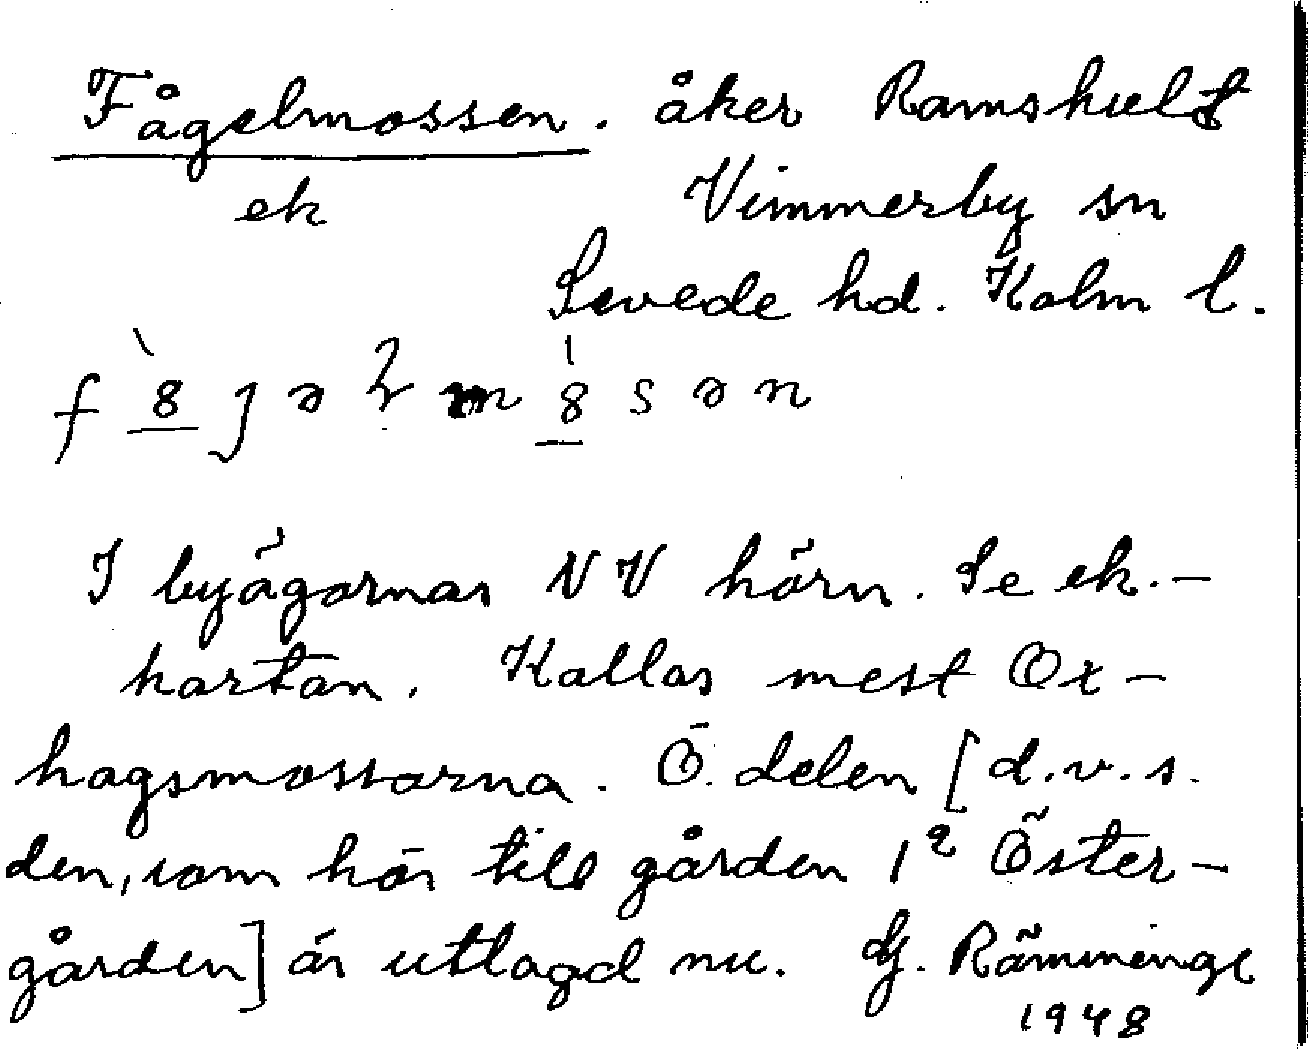 Fågelmossen. åker Ramshult
ek Vimmerby sn
Sevede hd. Kalm l.
I byägornas NV hörn. Se ek.-
kartan. Kallas mest Ox-
hagsmossarna. Ö. delen [d.v.s.
den, som hör till gården 1² Öster-
gården] är utlagd nu. Rämminge
1948